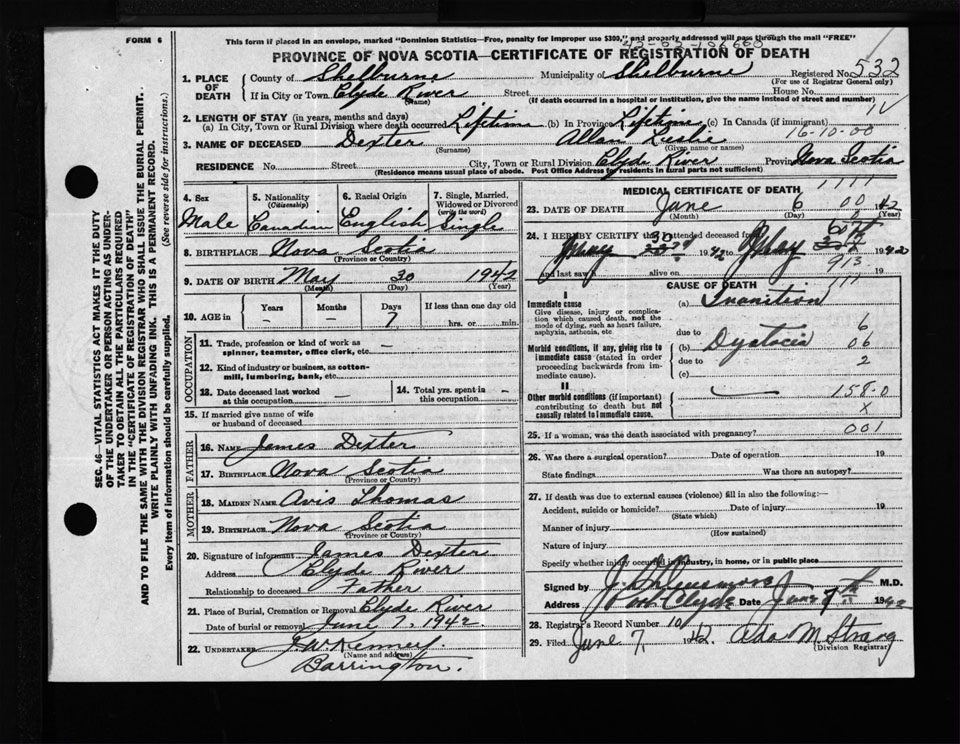 FORM 6
This form if placed in an envelope, marked "Dominion Statistics—Free, penalty for improper use $300," and properly addressed will pass through the mail "FREE"
PROVINCE OF NOVA SCOTIA—CERTIFICATE OF REGISTRATION OF DEATH
1. PLACE OF DEATH County of Shelburne Municipality of Shelburne Registered No. 532
(For use of Registrar General only)
If in City or Town Clyde River Street House No.
(Name) (If death occurred in a hospital or institution, give the name instead of street and number)
2. LENGTH OF STAY (in years, months and days)
(a) In City, Town or Rural Division where death occurred Lifetime (b) In Province Lifetime (c) In Canada (if immigrant)
16-10-00
3. NAME OF DECEASED Dexter Allan Leslie
(Surname) (Given name or names)
RESIDENCE No. Street City, Town or Rural Division Clyde River Province Nova Scotia
(Residence means usual place of abode. Post Office Address for residents in rural parts not sufficient)
4. Sex Male
5. Nationality (Citizenship) Canadian
6. Racial Origin English
7. Single, Married, Widowed or Divorced (write the word) Single
8. BIRTHPLACE Nova Scotia
(Province or Country)
9. DATE OF BIRTH May 30 1942
(Month) (Day) (Year)
10. AGE in Years – Months – Days 7 If less than one day old hrs. or min.
OCCUPATION
11. Trade, profession or kind of work as spinner, teamster, office clerk, etc. –
12. Kind of industry or business, as cotton-mill, lumbering, bank, etc. –
13. Date deceased last worked at this occupation –
14. Total yrs. spent in this occupation –
15. If married give name of wife or husband of deceased
FATHER
16. NAME James Dexter
17. BIRTHPLACE Nova Scotia
(Province or Country)
MOTHER
18. MAIDEN NAME Avis Thomas
19. BIRTHPLACE Nova Scotia
(Province or Country)
20. Signature of informant James Dexter
Address Clyde River
Relationship to deceased Father
21. Place of Burial, Cremation or Removal Clyde River
Date of burial or removal June 7, 1942
22. UNDERTAKER
(Name and address)
Barrington.
MEDICAL CERTIFICATE OF DEATH
1111
23. DATE OF DEATH June 6 00 42
(Month) (Day) (Year)
24. I HEREBY CERTIFY that I attended deceased from
May 30 1942 to 1942
and last saw h alive on 19
913
CAUSE OF DEATH
111
I
Immediate cause
Give disease, injury or complication which caused death, not the mode of dying, such as heart failure, asphyxia, asthenia, etc.
(a) Inanition
due to
6
Morbid conditions, if any, giving rise to immediate cause (stated in order proceeding backwards from immediate cause).
(b) Dystocia
06
due to
2
(c)
II
Other morbid conditions (if important) contributing to death but not causally related to immediate cause.
158-0
X
001
25. If a woman, was the death associated with pregnancy?
26. Was there a surgical operation? Date of operation 19
State findings Was there an autopsy?
27. If death was due to external causes (violence) fill in also the following:—
Accident, suicide or homicide? Date of injury 19
(State which)
Manner of injury
(How sustained)
Nature of injury
Specify whether injury occurred in industry, in home, or in public place
Signed by M.D.
Address Port Clyde Date June 1942
28. Registrar's Record Number 10
29. Filed June 7, 1942. Ada M Strang
(Division Registrar)
SEC. 46—VITAL STATISTICS ACT MAKES IT THE DUTY
OF THE UNDERTAKER OR PERSON ACTING AS UNDER-
TAKER TO OBTAIN ALL THE PARTICULARS REQUIRED
IN THE "CERTIFICATE OF REGISTRATION OF DEATH"
AND TO FILE THE SAME WITH THE DIVISION REGISTRAR WHO SHALL ISSUE THE BURIAL PERMIT.
WRITE PLAINLY WITH UNFADING INK. THIS IS A PERMANENT RECORD.
Every item of information should be carefully supplied. (See reverse side for instructions.)